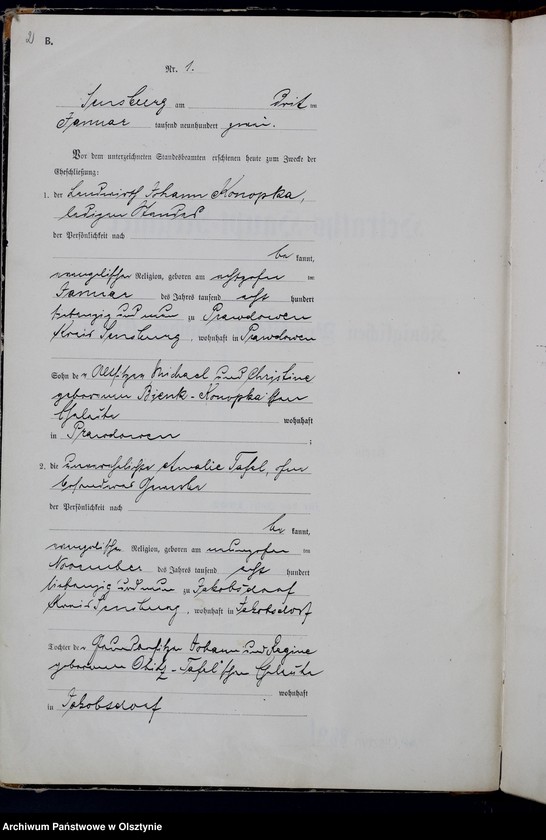 2)
B.
Nr. 1.
Sensburg am Drit en
Januar tausend neunhundert zwei.
Vor dem unterzeichneten Standesbeamten erschienen heute zum Zwecke der
Eheschließung:
1. der Landwirth Johann Konopka,
ledigen Standes
der Persönlichkeit nach
be kannt,
evangelischer Religion, geboren am achtzehn im
Januar des Jahres tausend acht hundert
siebenzig und neun zu Prawdowen
Kreis Sensburg, wohnhaft in Prawdowen
Sohn der Altsitzer Michael und Christine
geborenen Bienk-Konopka'schen
Eheleute wohnhaft
in Prawdowen ;
2. die unverehelichte Amalie Tafel, ohne
besonderes Gewerbe
der Persönlichkeit nach
be kannt,
evangelischer Religion, geboren am neunzehn im
November des Jahres tausend acht hundert
siebenzig und neun zu Jakobsdorf
Kreis Sensburg, wohnhaft in Jakobsdorf
Tochter der Grundbesitzer Johann und Regine
geborenen -Tafel'schen Eheleute
wohnhaft
in Jakobsdorf
Archiwum Państwowe w Olsztynie